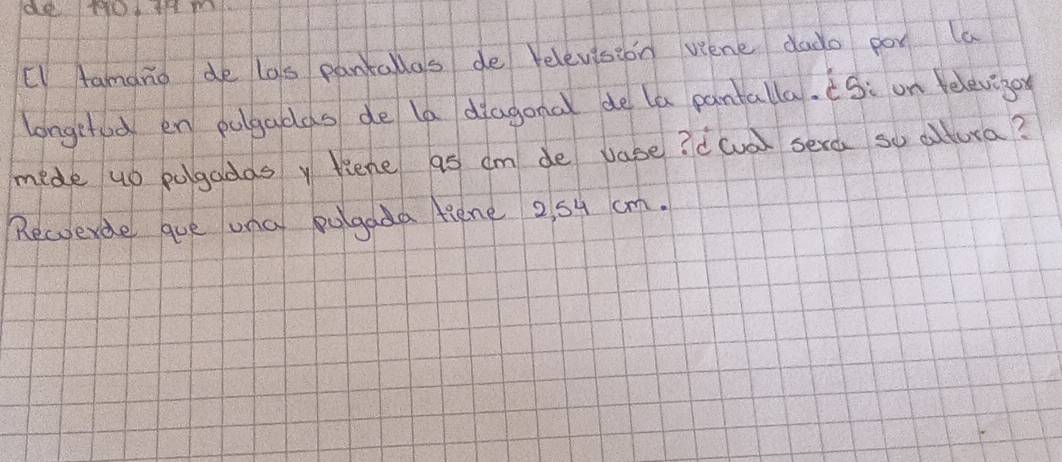 El tamaño de las pantallas de televisión viene dado por la
longitud en pulgadas de la diagonal de la pantalla. ¿Si un televizor
mide 40 pulgadas y tiene 95 cm de vase? ¿Cual sera su altura?
Recuerde que una pulgada tiene 2,54 cm.